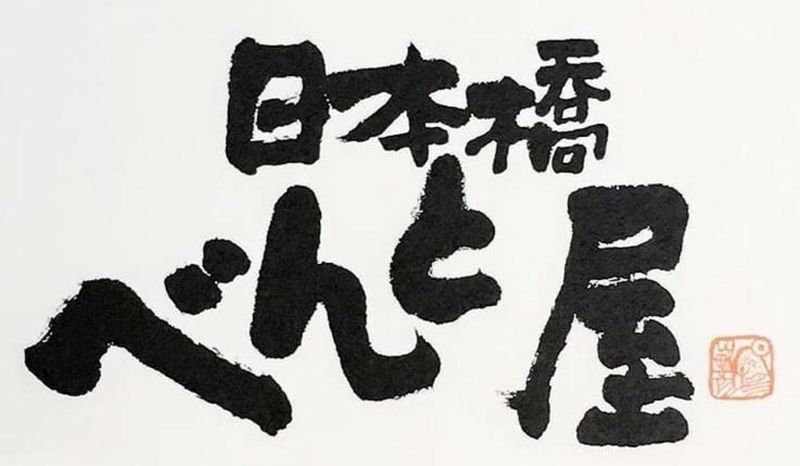 日本橋
べんと屋